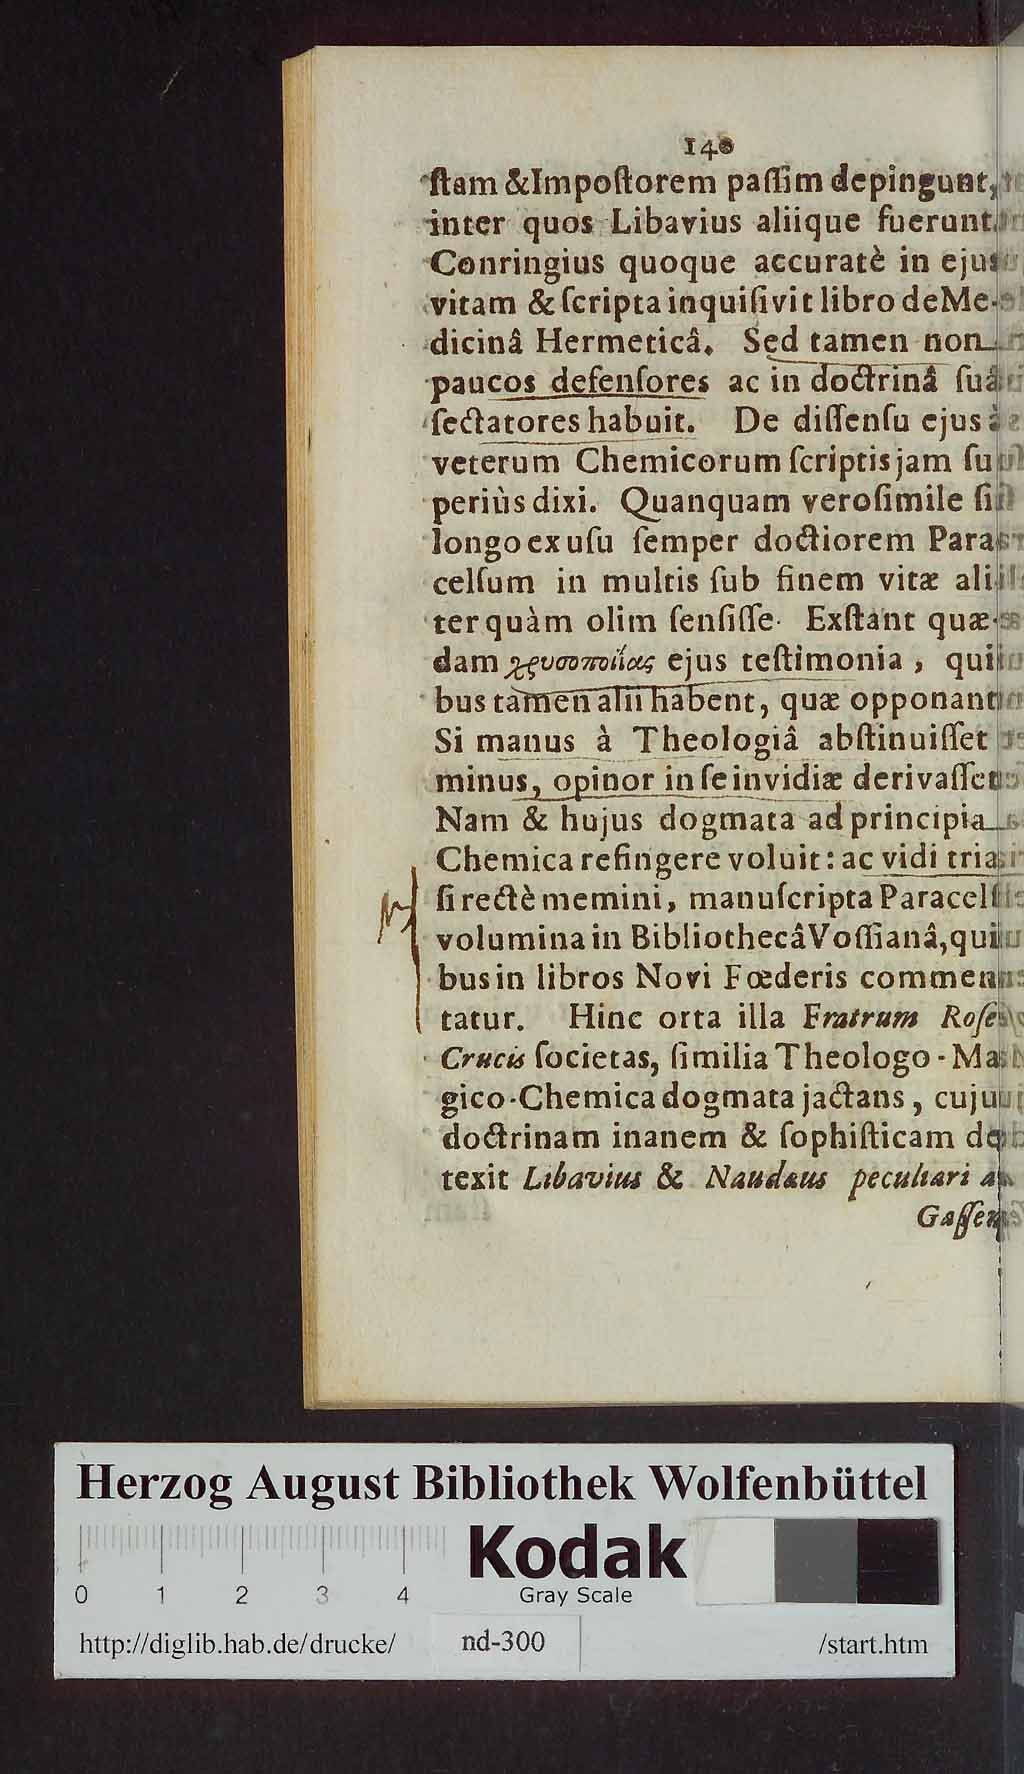 140
ſtam & Impoſtorem paſſim depingunt,
inter quos Libavius aliique fuerunt.
Conringius quoque accuratè in ejus
vitam & ſcripta inquiſivit libro de Me-
dicinâ Hermeticâ. Sed tamen non
paucos defenſores ac in doctrinâ ſuâ
ſectatores habuit. De diſſenſu ejus à
veterum Chemicorum ſcriptis jam ſu
periùs dixi. Quanquam veroſimile ſit
longo ex uſu ſemper doctiorem Para
celſum in multis ſub finem vitæ ali
ter quàm olim ſenſiſſe. Exſtant quæ-
dam χρυσοποιΐας ejus teſtimonia, qui
bus tamen alii habent, quæ opponant
Si manus à Theologiâ abſtinuiſſet
minus, opinor in ſe invidiæ derivaſſet
Nam & hujus dogmata ad principia
Chemica refingere voluit: ac vidi tria
ſi rectè memini, manuſcripta Paracelſi
volumina in Bibliothecâ Voſſianâ, qui
bus in libros Novi Fœderis commen
tatur. Hinc orta illa Fratrum Roſeæ
Crucis ſocietas, ſimilia Theologo-Ma
gico-Chemica dogmata jactans, cuju
doctrinam inanem & ſophiſticam de
texit Libavius & Naudæus peculiari
Gaſſen
Herzog August Bibliothek Wolfenbüttel
0 1 2 3 4
Kodak
Gray Scale
http://diglib.hab.de/drucke/ nd-300 /start.htm